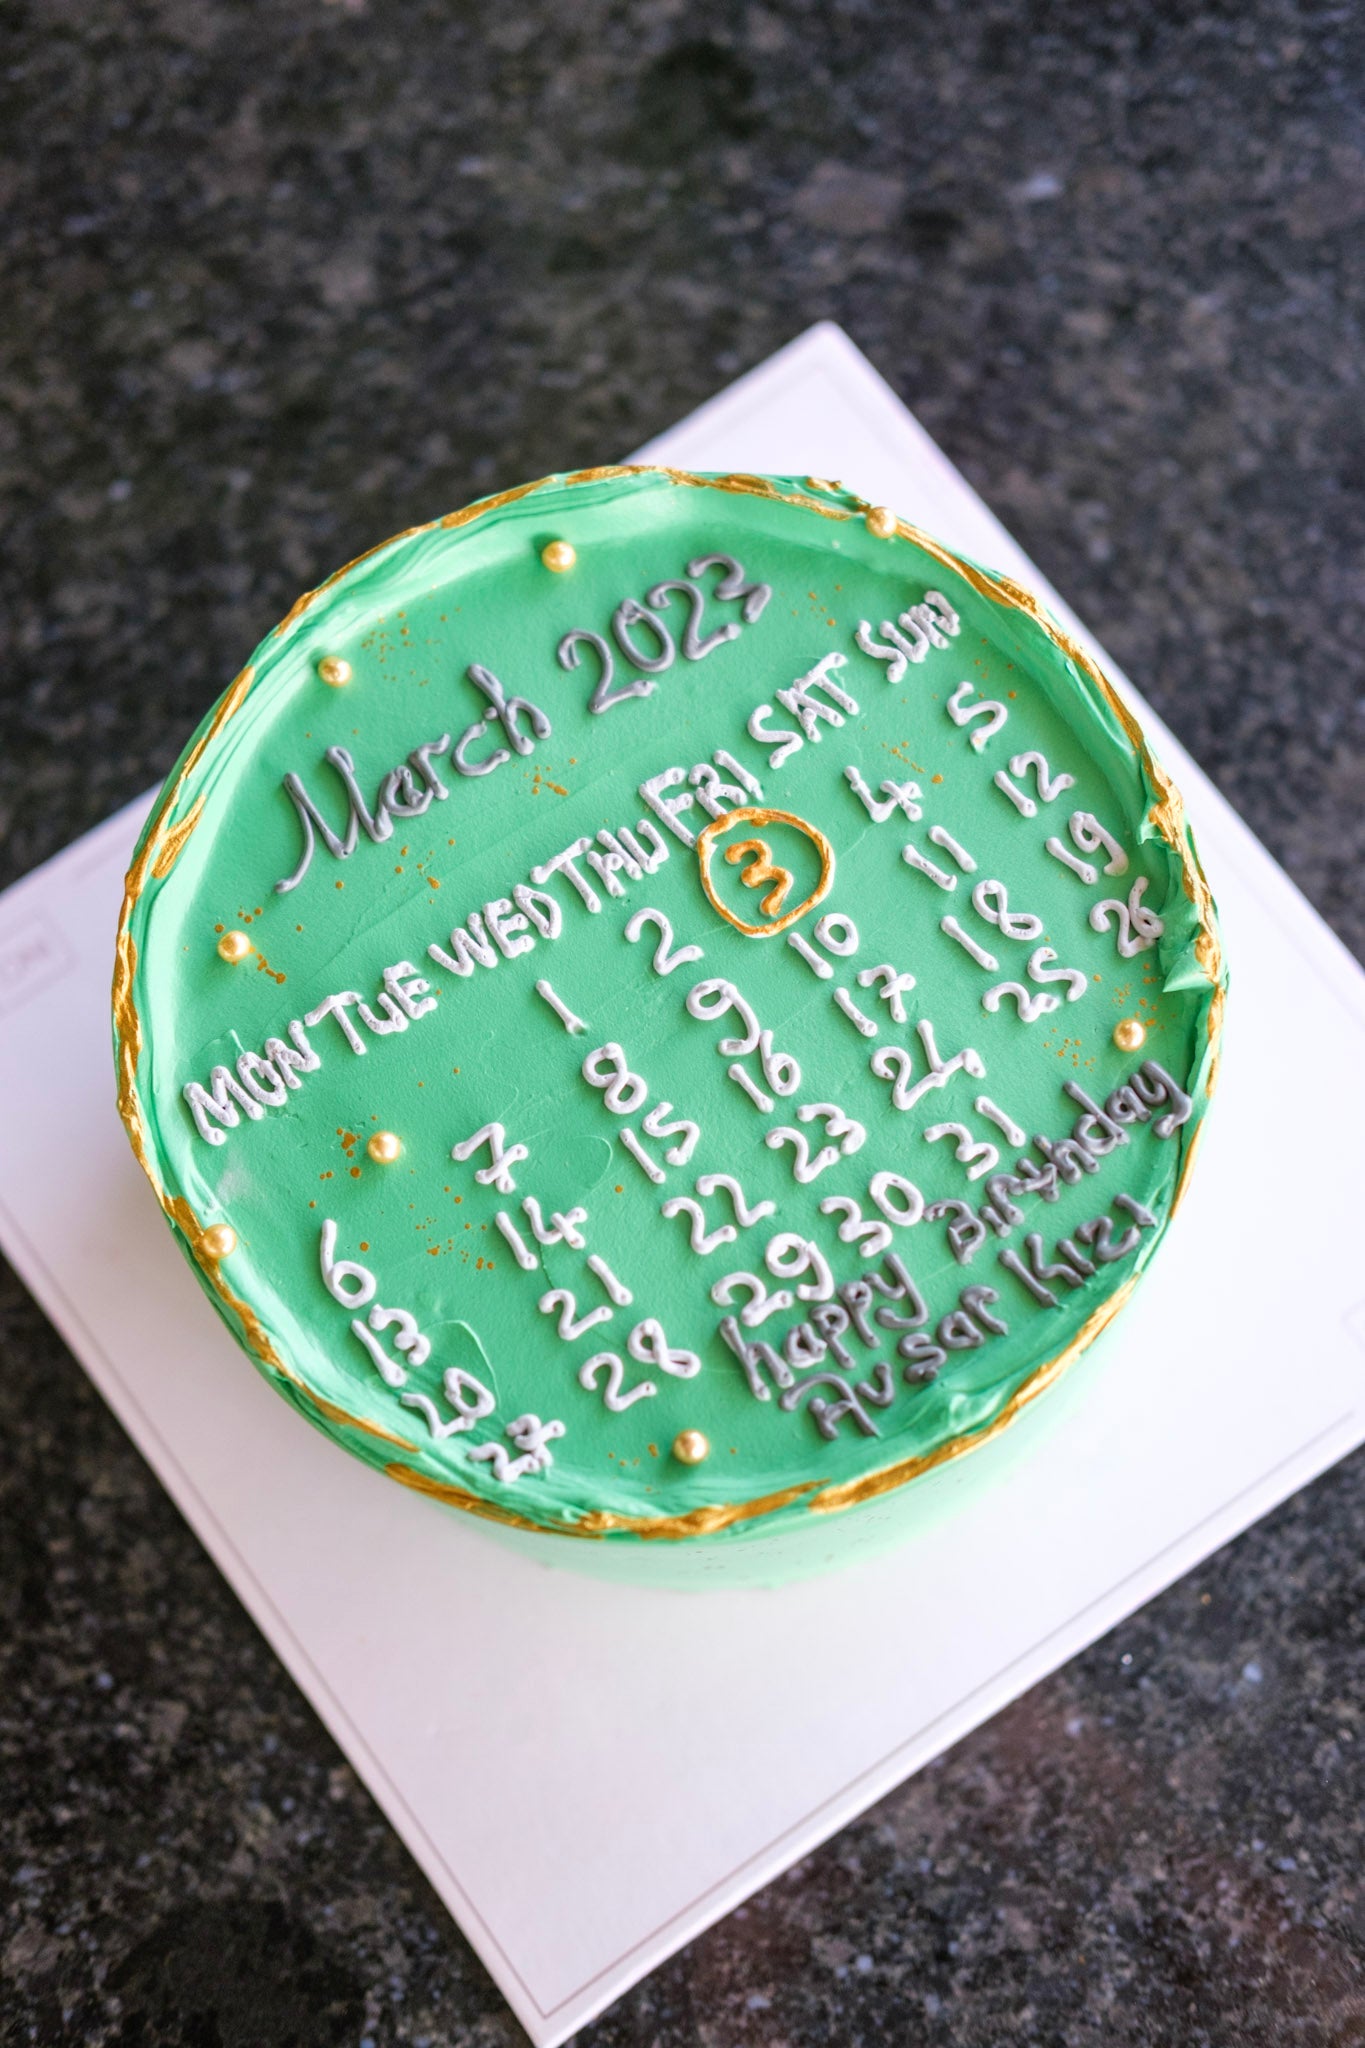 March 2023
MON TUE WED THU FRI SAT SUN
1 2 3 4 5
6 7 8 9 10 11 12
13 14 15 16 17 18 19
20 21 22 23 24 25 26
27 28 29 30 31
happy Birthday
Avsar Kizi